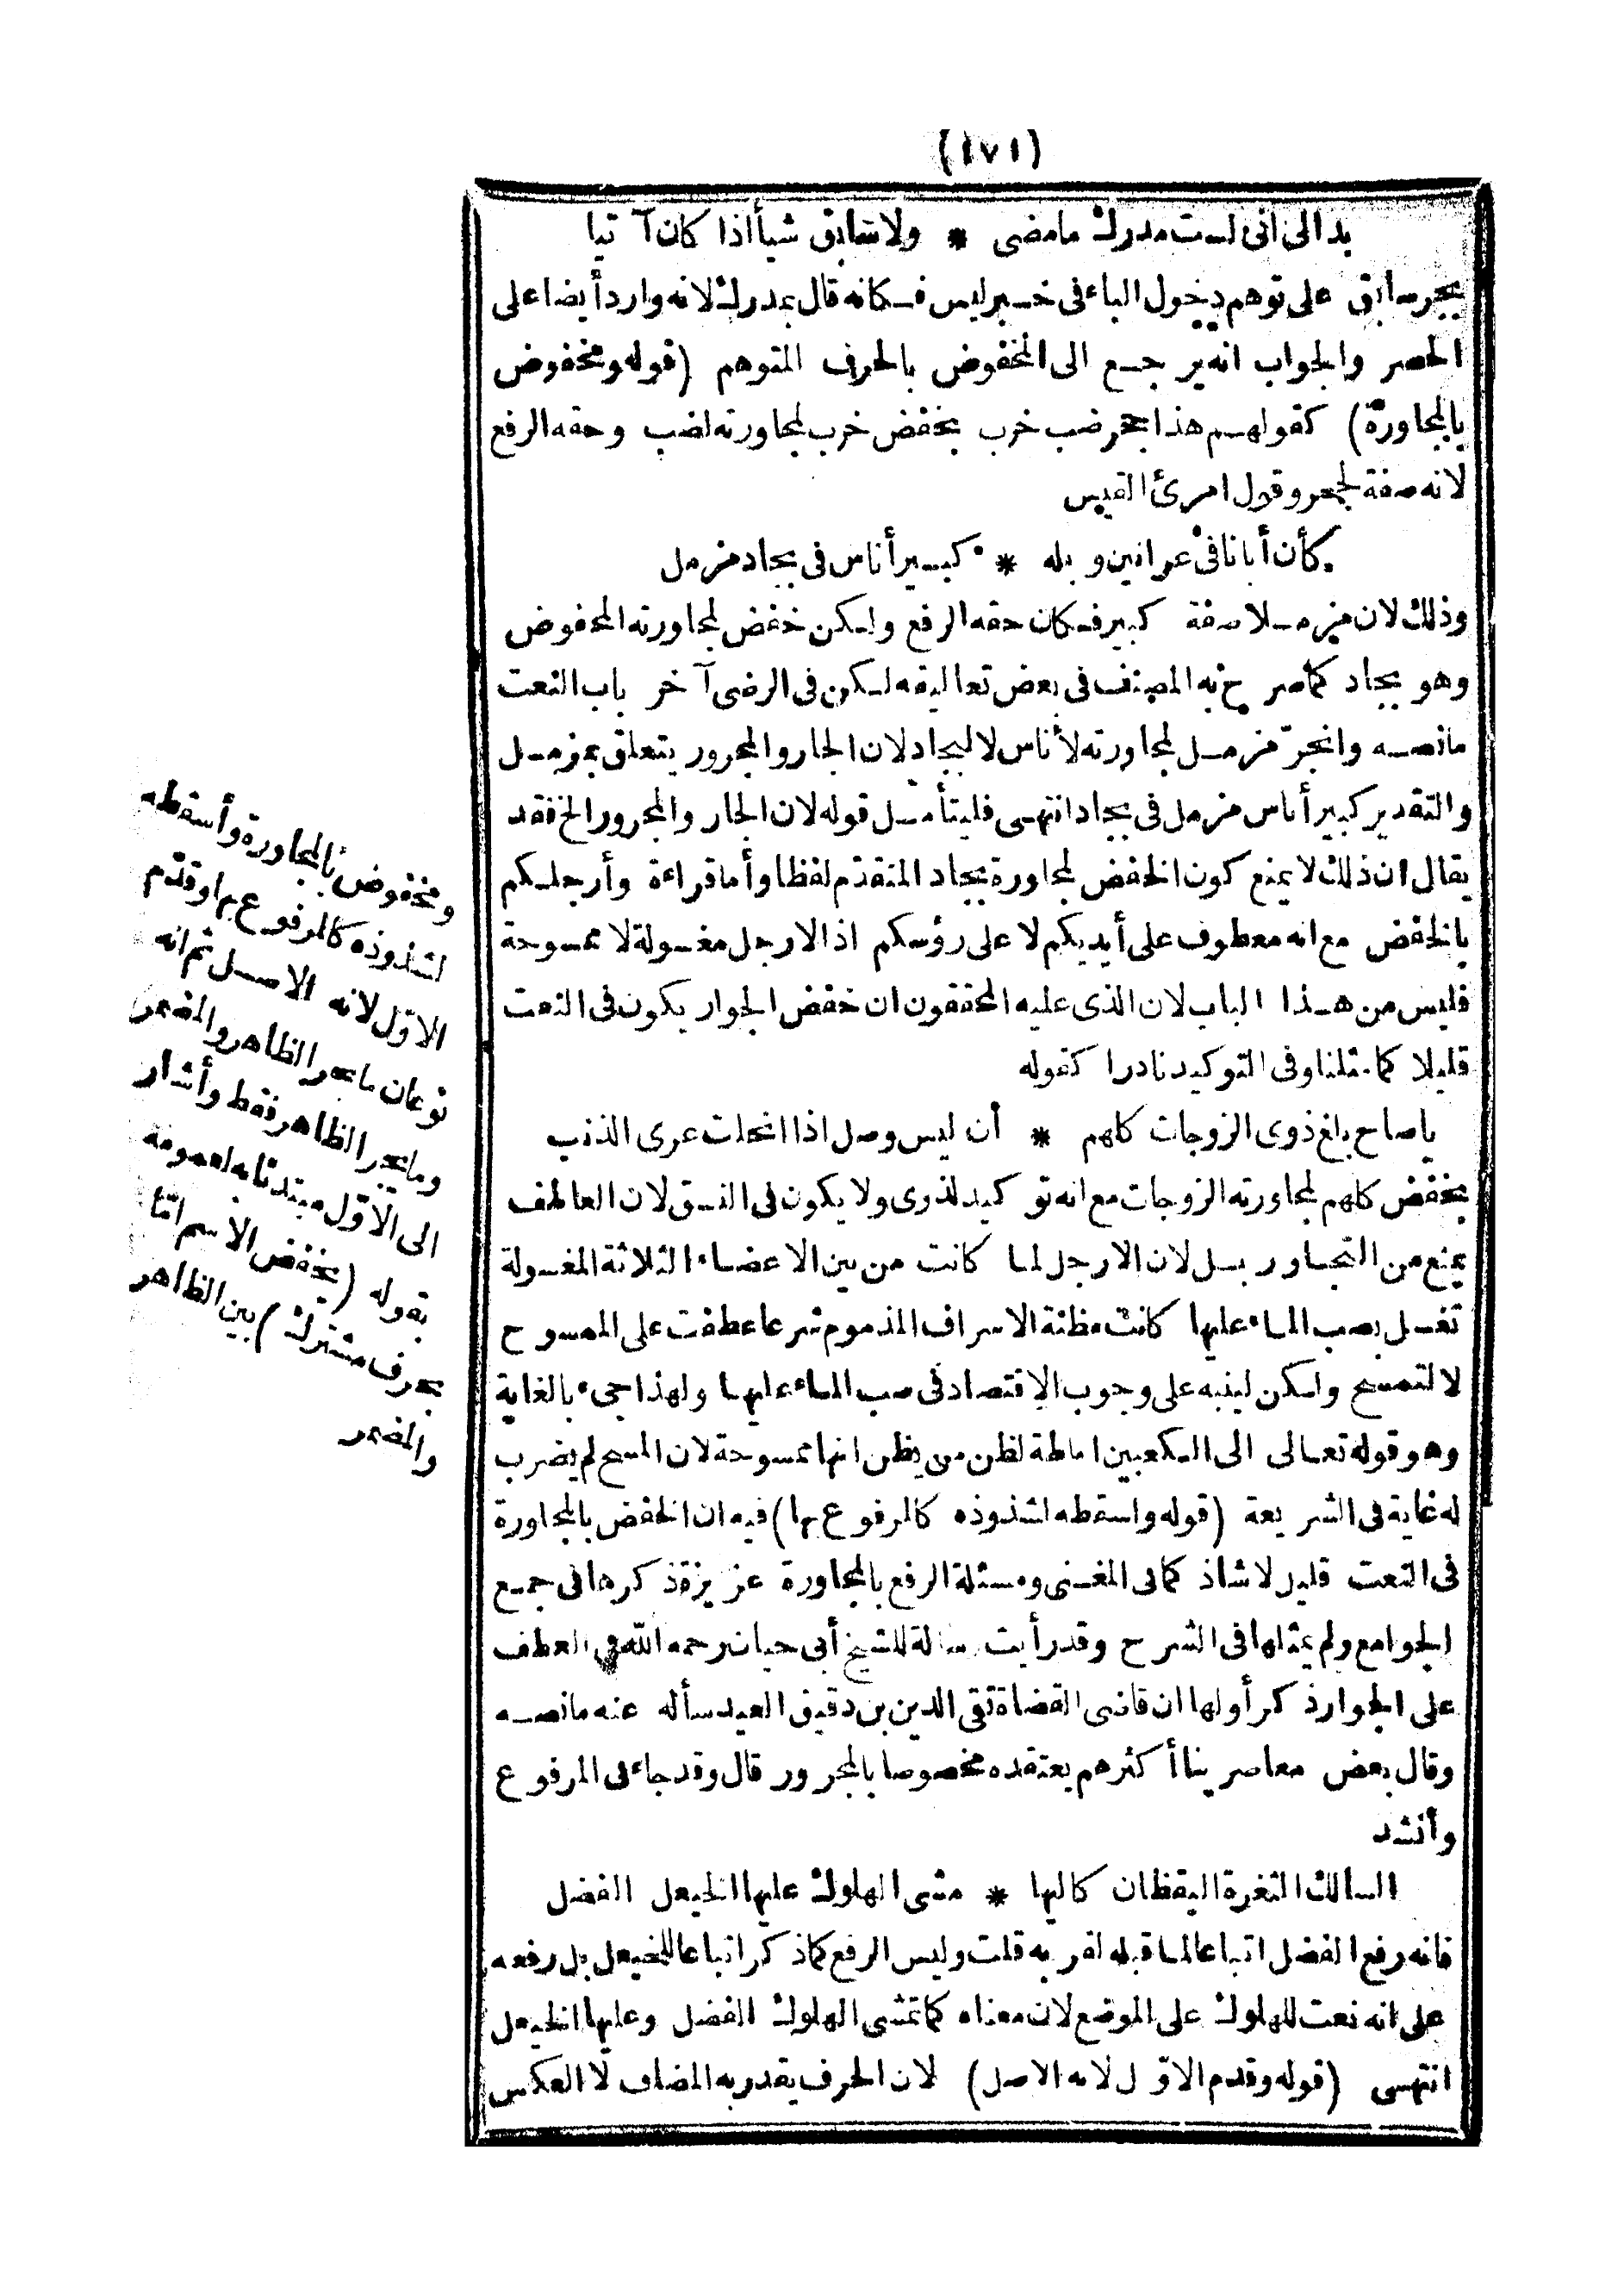 (١٧١)
بدالى انى لست مدرك مامضى * ولا سابق شيأ اذا كان آتيا
بجر سابق على توهم دخول الباء فى خبر ليس فكانه قال بمدرك لانه وارد أيضا على
الحصر والجواب انه يرجع الى المخفوض بالحرف المتوهم (قوله ومخفوض
بالمجاورة) كقولهم هذا جحر ضب خرب بخفض خرب لمجاورته لضب وحقه الرفع
لانه صفة لجحر وقول امرئ القيس
كأن أبانا فى عرانين وبله * كبير أناس فى بجاد مزمل
وذلك لان مزملا صفة كبير فكان حقه الرفع ولكن خفض لمجاورته المخفوض
وهو بجاد كما صرح به المصنف فى بعض تعاليقه لكن فى الرضى آخر باب النعت
مانصه وانجرّ مزمل لمجاورته لأناس لا لبجاد لان الجار والمجرور يتعلق بمزمل
والتقدير كبير أناس مزمل فى بجاد انتهى فليتأمل قوله لان الجار والمجرور الخ فقد
يقال ان ذلك لا يمنع كون الخفض لمجاورة بجاد المتقدم لفظا وأما قراءة وأرجلكم
بالخفض مع انه معطوف على أيديكم لا على رؤسكم اذ الارجل مغسولة لا ممسوحة
فليس من هذا الباب لان الذى عليه المحققون ان خفض الجوار يكون فى النعت
قليلا كما مثلنا وفى التوكيد نادرا كقوله
ياصاح بلغ ذوى الزوجات كلهم * أن ليس وصل اذا انحلت عرى الذنب
بخفض كلهم لمجاورته الزوجات مع انه توكيد لذوى ولا يكون فى النسق لان العاطف
يمنع من التجاور بل لان الارجل لما كانت من بين الاعضاء الثلاثة المغسولة
تغسل بصب الماء عليها كانت مظنة الاسراف المذموم شرعا عطفت على الممسوح
لا لتمسح ولكن لينبه على وجوب الاقتصاد فى صب الماء عليها ولهذا جىء بالغاية
وهو قوله تعالى الى الكعبين اماطة لظن من يظن انها ممسوحة لان المسح لم يضرب
له غاية فى الشريعة (قوله واسقطه لشذوذه كالمرفوع بها) فيه ان الخفض بالمجاورة
فى النعت قليل لا شاذ كما فى المغنى ومسئلة الرفع بالمجاورة عزيزة ذكرها فى جمع
الجوامع ولم يمثلها فى الشرح وقد رأيت رسالة للشيخ أبى حيان رحمه الله فى العطف
على الجوار ذكر أولها ان قاضى القضاة تقى الدين بن دقيق العيد سأله عنه مانصه
وقال بعض معاصرينا أكثرهم يعتقده مخصوصا بالمجرور قال وقد جاء فى المرفوع
وأنشد
السالك الثغرة اليقظان كاليها * مشى الهلوك عليها الخيعل الفضل
فانه رفع الفضل اتباعا لما قبله لقربه قلت وليس الرفع كما ذكر اتباعا للخيعل بل رفعه
على انه نعت للهلوك على الموضع لان معناه كما تمشى الهلوك الفضل وعليها الخيعل
انتهى (قوله وقدم الاوّل لانه الاصل) لان الحرف يقدر به المضاف لا العكس
ومخفوض بالمجاورة وأسقطه
لشذوذه كالمرفوع بها وقدّم
الاوّل لانه الاصل ثم انه
نوعان ما يجر الظاهر والمضمر
وما يجر الظاهر فقط وأشار
الى الاوّل مبتدئا به لعمومه
بقوله (يخفض الاسم امّا
بحرف مشترك) بين الظاهر
والمضمر